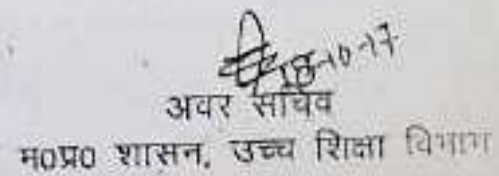 18-10-17
अवर सचिव
म0प्र0 शासन, उच्च शिक्षा विभाग